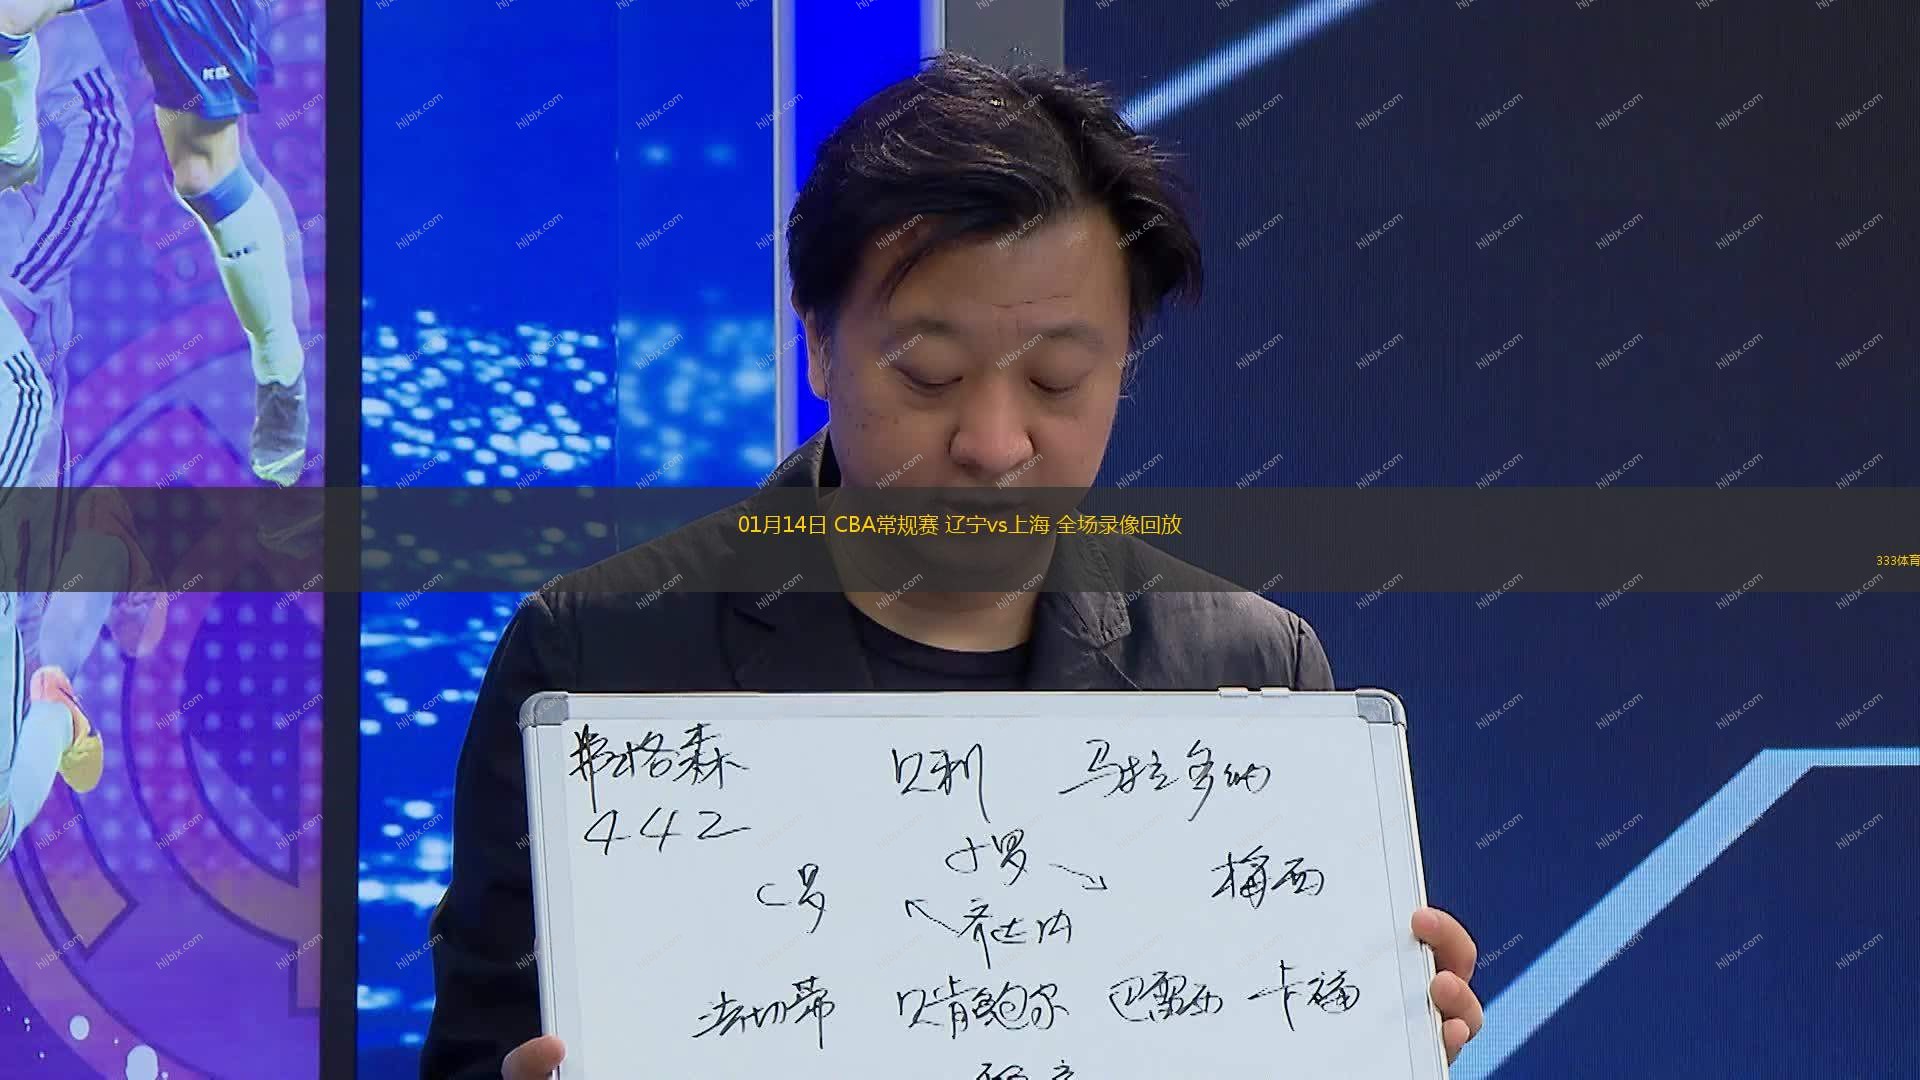 01月14日 CBA常规赛 辽宁vs上海 全场录像回放
333体育
弗格森 贝利 马拉多纳
442
小罗
C罗 梅西
齐达内
法切蒂 贝肯鲍尔 巴雷西 卡福
hljbjx.com